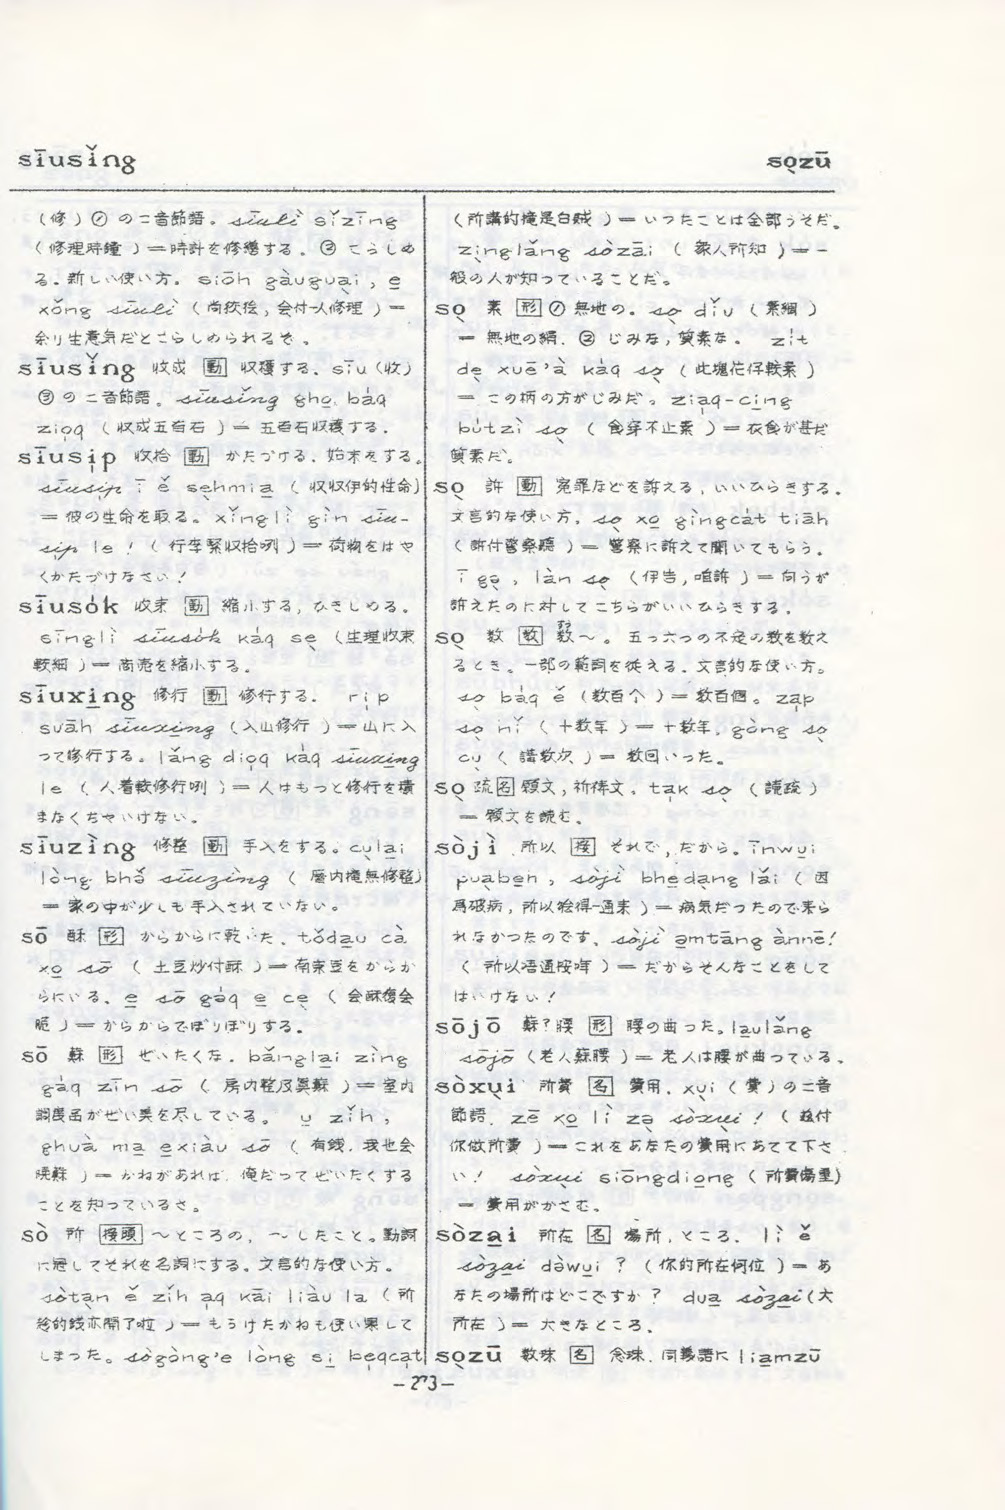 sīusǐng
so̱zū
(修)① の二音節語。sīulì sǐzīng
(修理時鐘)＝時計を修繕する。② こらしめ
る。新しい使い方。siōh gàuguai, e
xǒng sīulì (尚狡怪, 会付人修理)＝
余り生意気だとこらしめられるぞ。
sīusǐng 收成 [動] 収穫する. sīu(收)
③ の二音節語。sīusǐng gho̱ báq
zioq (収成五百石)＝五百石収穫する.
sīusi̍p 收拾 [動] かたづける. 始末をする。
sīusi̍p ī ě se̱hmia̱ (収収伊的性命)
＝彼の生命を取る。xǐnglì gìn sīu-
si̍p le! (行李緊収拾咧)＝荷物をはや
くかたづけなさい!
sīusók 收束 [動] 縮小する, ひきしめる。
sīnglì sīusók káq se̱ (生理收束
較細)＝商売を縮小する。
sīuxi̱ng 修行 [動] 修行する. ri̍p
suāh sīuxi̱ng (入山修行)＝山に入
って修行する。lǎng dioq káq sīuxi̱ng
le (人着較修行咧)＝人はもっと修行を積
まなくちゃいけない。
sīuzìng 修整 [動] 手入をする。cu̱lai
lòng bhǒ sīuzìng (厝内攏無修整)
＝家の中が少しも手入されていない。
sō 酥 [形] からからに乾いた. tǒda̱u cà
xo̱ sō (土豆炒付酥)＝南京豆をからか
らにいる. e̱ sō gāq e̱ ce̱ (会酥復会
脆)＝からからでぽりぽりする.
sō 蘇 [形] ぜいたくな. bǎinglai zìng
gáq zīn sō (房内整及真蘇)＝室内
調度品がぜい美を尽している。 u̱ zǐh,
ghuà ma̱ e̱xiàu sō (有銭, 我也会
暁蘇)＝かねがあれば, 俺だってぜいたくする
ことを知っているさ。
sò 所 [接頭] 〜ところの, 〜したこと。動詞
に冠してそれを名詞にする。文言的な使い方。
sòta̱n ě zǐh aq kāi liàu la (所
的銭亦開了啦)＝もうけたかねも使い果して
しまった。sògòng'e lòng si̱ be̱qca̍t
(所講的攏是白賊)＝いったことは全部うそだ。
zìnglǎng sòzāi (衆人所知)＝一
般の人が知っていることだ。
so̱ 素 [形] ① 無地の。so̱ dǐu (素綢)
＝無地の絹. ② じみな, 質素な。 zi̍t
de̱ xuē'à káq so̱ (此塊花仔較素)
＝この柄の方がじみだ。zia̍q-cing
bútzì so̱ (食穿不止素)＝衣食が甚だ
質素だ。
so̱ 訴 [動] 冤罪などを訴える, いいひらきする.
文言的な使い方. so̱ xo̱ gìngcát tiāh
(訴付警察聽)＝警察に訴えて聞いてもらう。
ī ga̱, làn so̱ (伊告, 咱訴)＝向うが
訴えたのに対してこちらがいいひらきする.
so̱ 数 [数] 数〜。五つ六つの不定の数を数え
るとき。一部の範詞を従える. 文言的な使い方。
so̱ báq ě (数百个)＝数百個。za̍p
so̱ nǐ (十数年)＝十数年. gòng so̱
cu̱ (講数次)＝数回いった。
so̱ 疏 [名] 願文, 祈祷文. ta̍k so̱ (讀疏)
＝願文を読む。
sòjì 所以 [接] それで, だから. īnwu̱i
pua̱be̱n, sòjì bhe̱da̱ng lǎi (因
為破病, 所以得通来)＝病気だったので来ら
れなかったのです. sòjì a̱mtāng ànnē!
(所以唔通按)＝だからそんなことをして
はいけない!
sōjō 蘇?腰 [形] 腰の曲った。la̱ulǎng
sōjō (老人蘇腰)＝老人は腰が曲っている.
sòxu̱i 所費 [名] 費用. xu̱i (費)の二音
節語. zē xo̱ lì zo̱ sòxu̱i! (付
你做所費)＝これをあなたの費用にあてて下さ
い! sòxu̱i siōngdio̱ng (所費傷重)
＝費用がかさむ。
sòza̱i 所在 [名] 場所, ところ. lì ě
sòza̱i dòwu̱i? (你的所在何位)＝あ
なたの場所はどこですか? dua̱ sòza̱i (大
所在)＝大きなところ.
so̱zū 数珠 [名] 念珠. 同義語に lia̱mzū
－273－